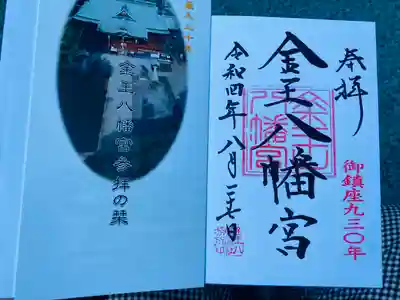 奉拝
御鎮座九三〇年
金王八幡宮
令和四年八月二十七日
金王八幡宮参拝の栞